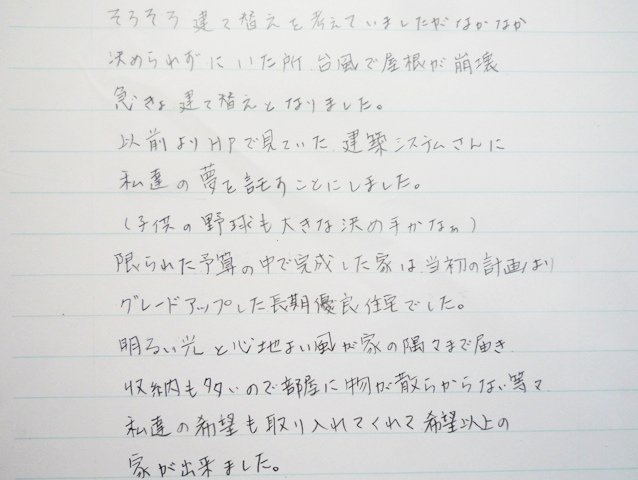 そろそろ建て替えを考えていましたがなかなか
決められずにいた所、台風で屋根が崩壊
急きょ建て替えとなりました。
以前よりHPで見ていた、建築システムさんに
私達の夢を託すことにしました。
(子供の野球も大きな決め手かなぁ)
限られた予算の中で完成した家は、当初の計画より
グレードアップした長期優良住宅でした。
明るい光と心地よい風が家の隅々まで届き、
収納も多いので部屋に物が散らからない等々
私達の希望も取り入れてくれて希望以上の
家が出来ました。